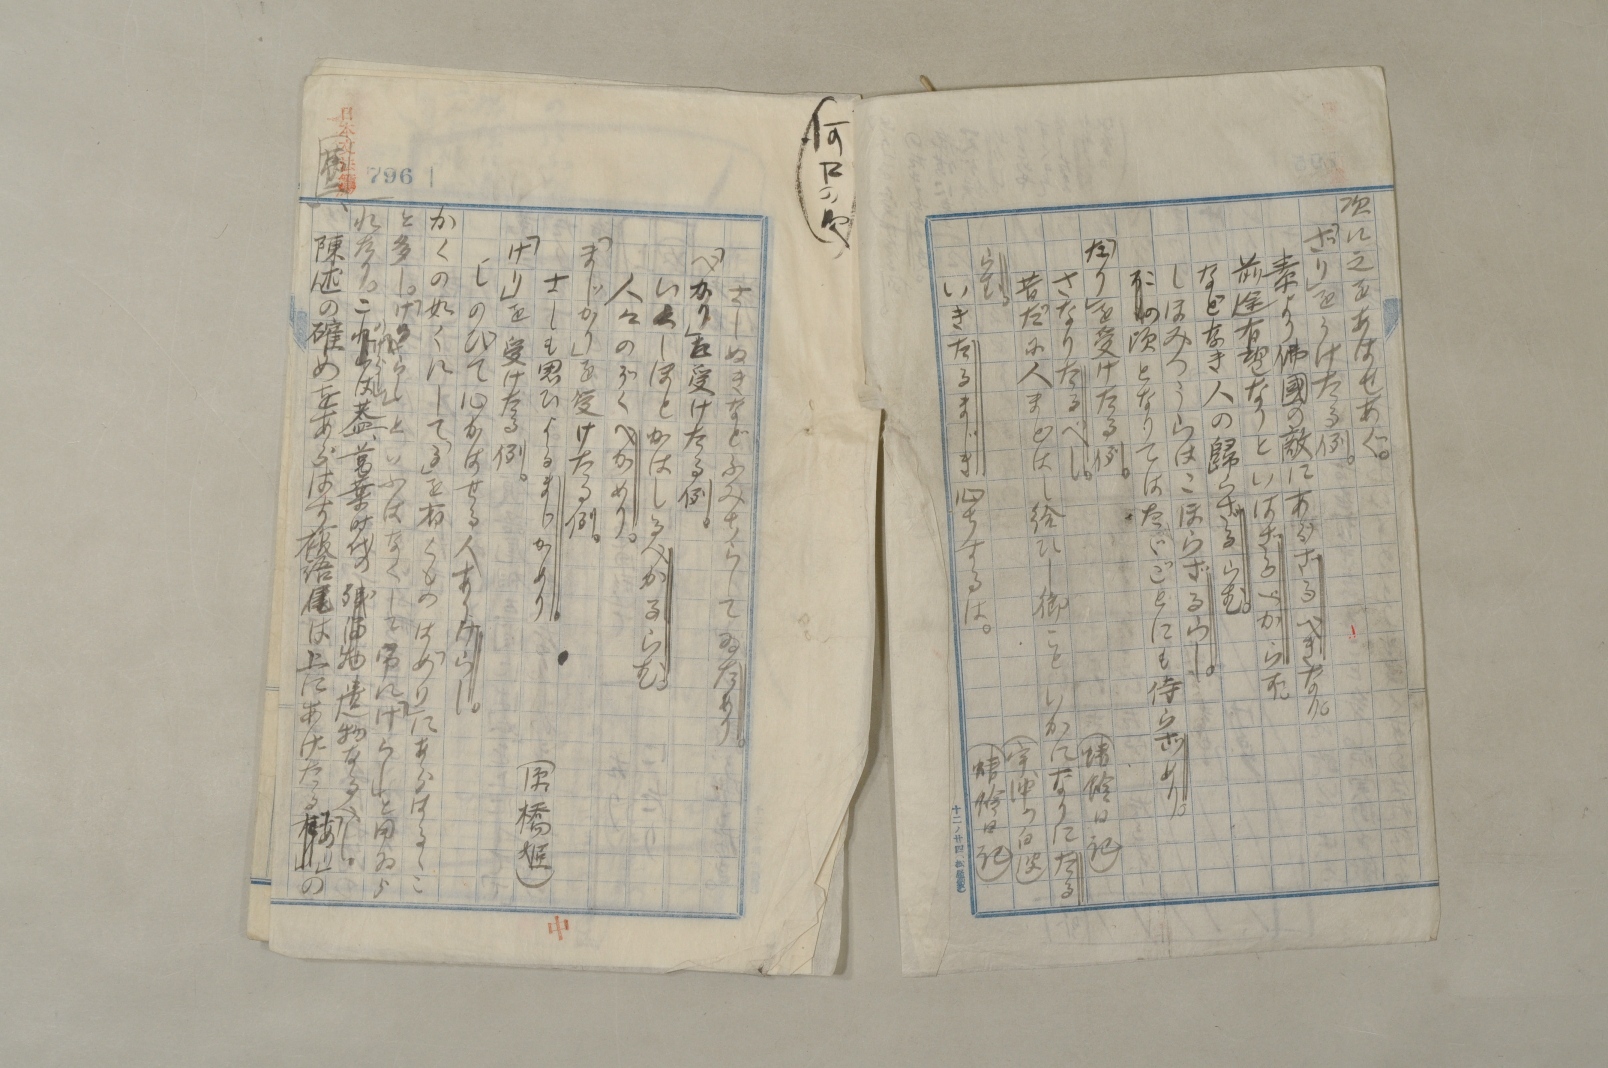 次に之をあはせあぐ。
「ざり」をうけたる例。
秦より佛國の敵にあらざるべきなり。
前途有望なりといはざるべからず
などなき人の歸らざるらむ。
しほみつうらはこほらざるらし。
次の頃となりてはたゞごとにも侍らざめり。
「たり」を受けたる例。
さなりたるべし。
(蜻蛉日記)
昔だに人まどはし給ひし御こといかになりにたる
らむ。
いきたるまじき心ちするは。
(蜻蛉日記)
十二ノ廿四
(何日の
さしぬきなどふみちらしてゐたあり。
「べかり」を受けたる例。
いくしほとかはしるべかるらむ。
人々のぞくべかめり。
「まじかり」を受けたる例。
さしも思ひよるまじかめり。
(橋姫)
「けり」を受けたる例。
しのびて心かはせる人ありけらし。
かくの如くにして「る」を省くものはめりにあらはるゝこ
と多し。「けるらし」といふはなくして常に「けらし」と用ゐら
れたり。これらは蓋、萬葉時代の遺物なるべし。
陳述の確めをあらはす複語尾は上にあげたる
796
中